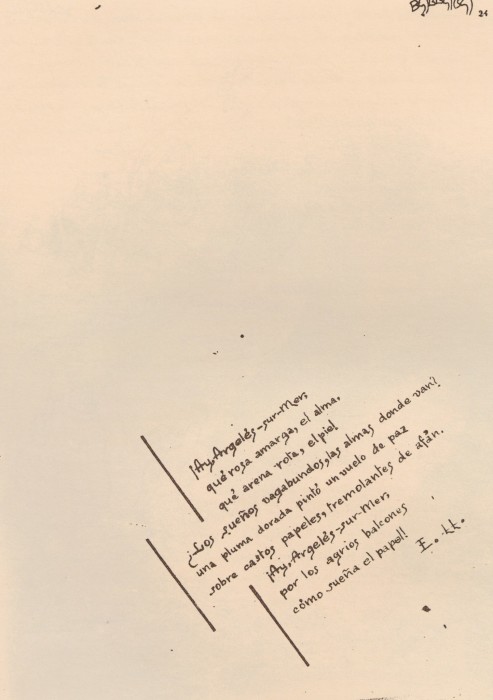 24
¡Ay, Argelés-sur-Mer,
qué rosa amarga, el alma,
qué arena rota, el pie!
¿Los sueños vagabundos, las almas donde van?
una pluma dorada pintó un vuelo de paz
sobre castos papeles, tremolantes de afán.
¡Ay, Argelés-sur-Mer,
por los agrios balcones
cómo sueña el papel!